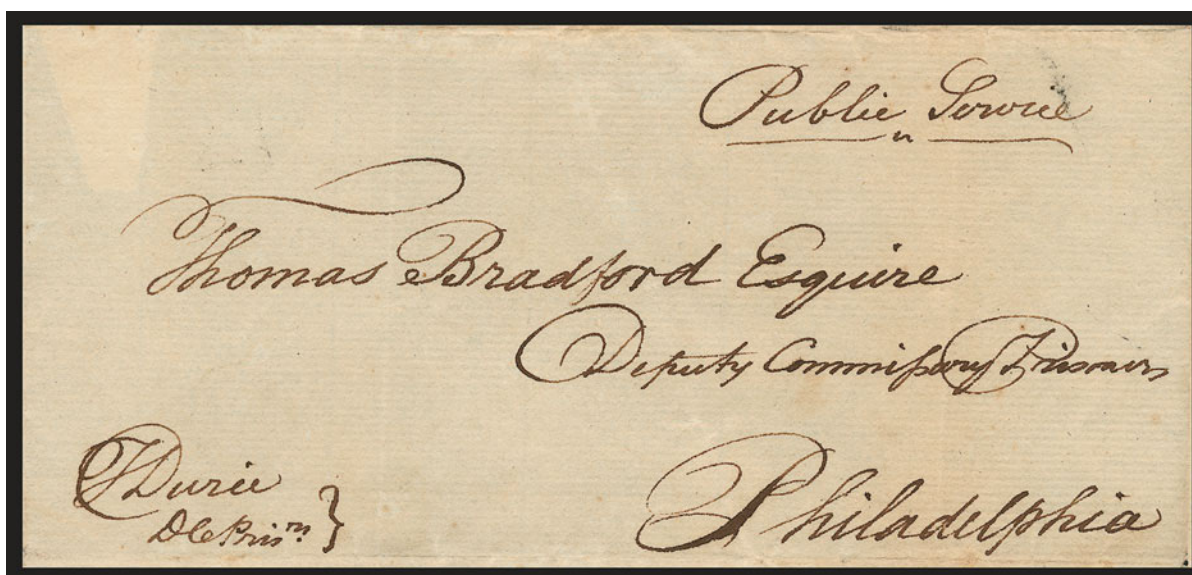 Public Service
Thomas Bradford Esquire
Deputy Commissary Prisoners
Philadelphia
Durie
D C Prisrs